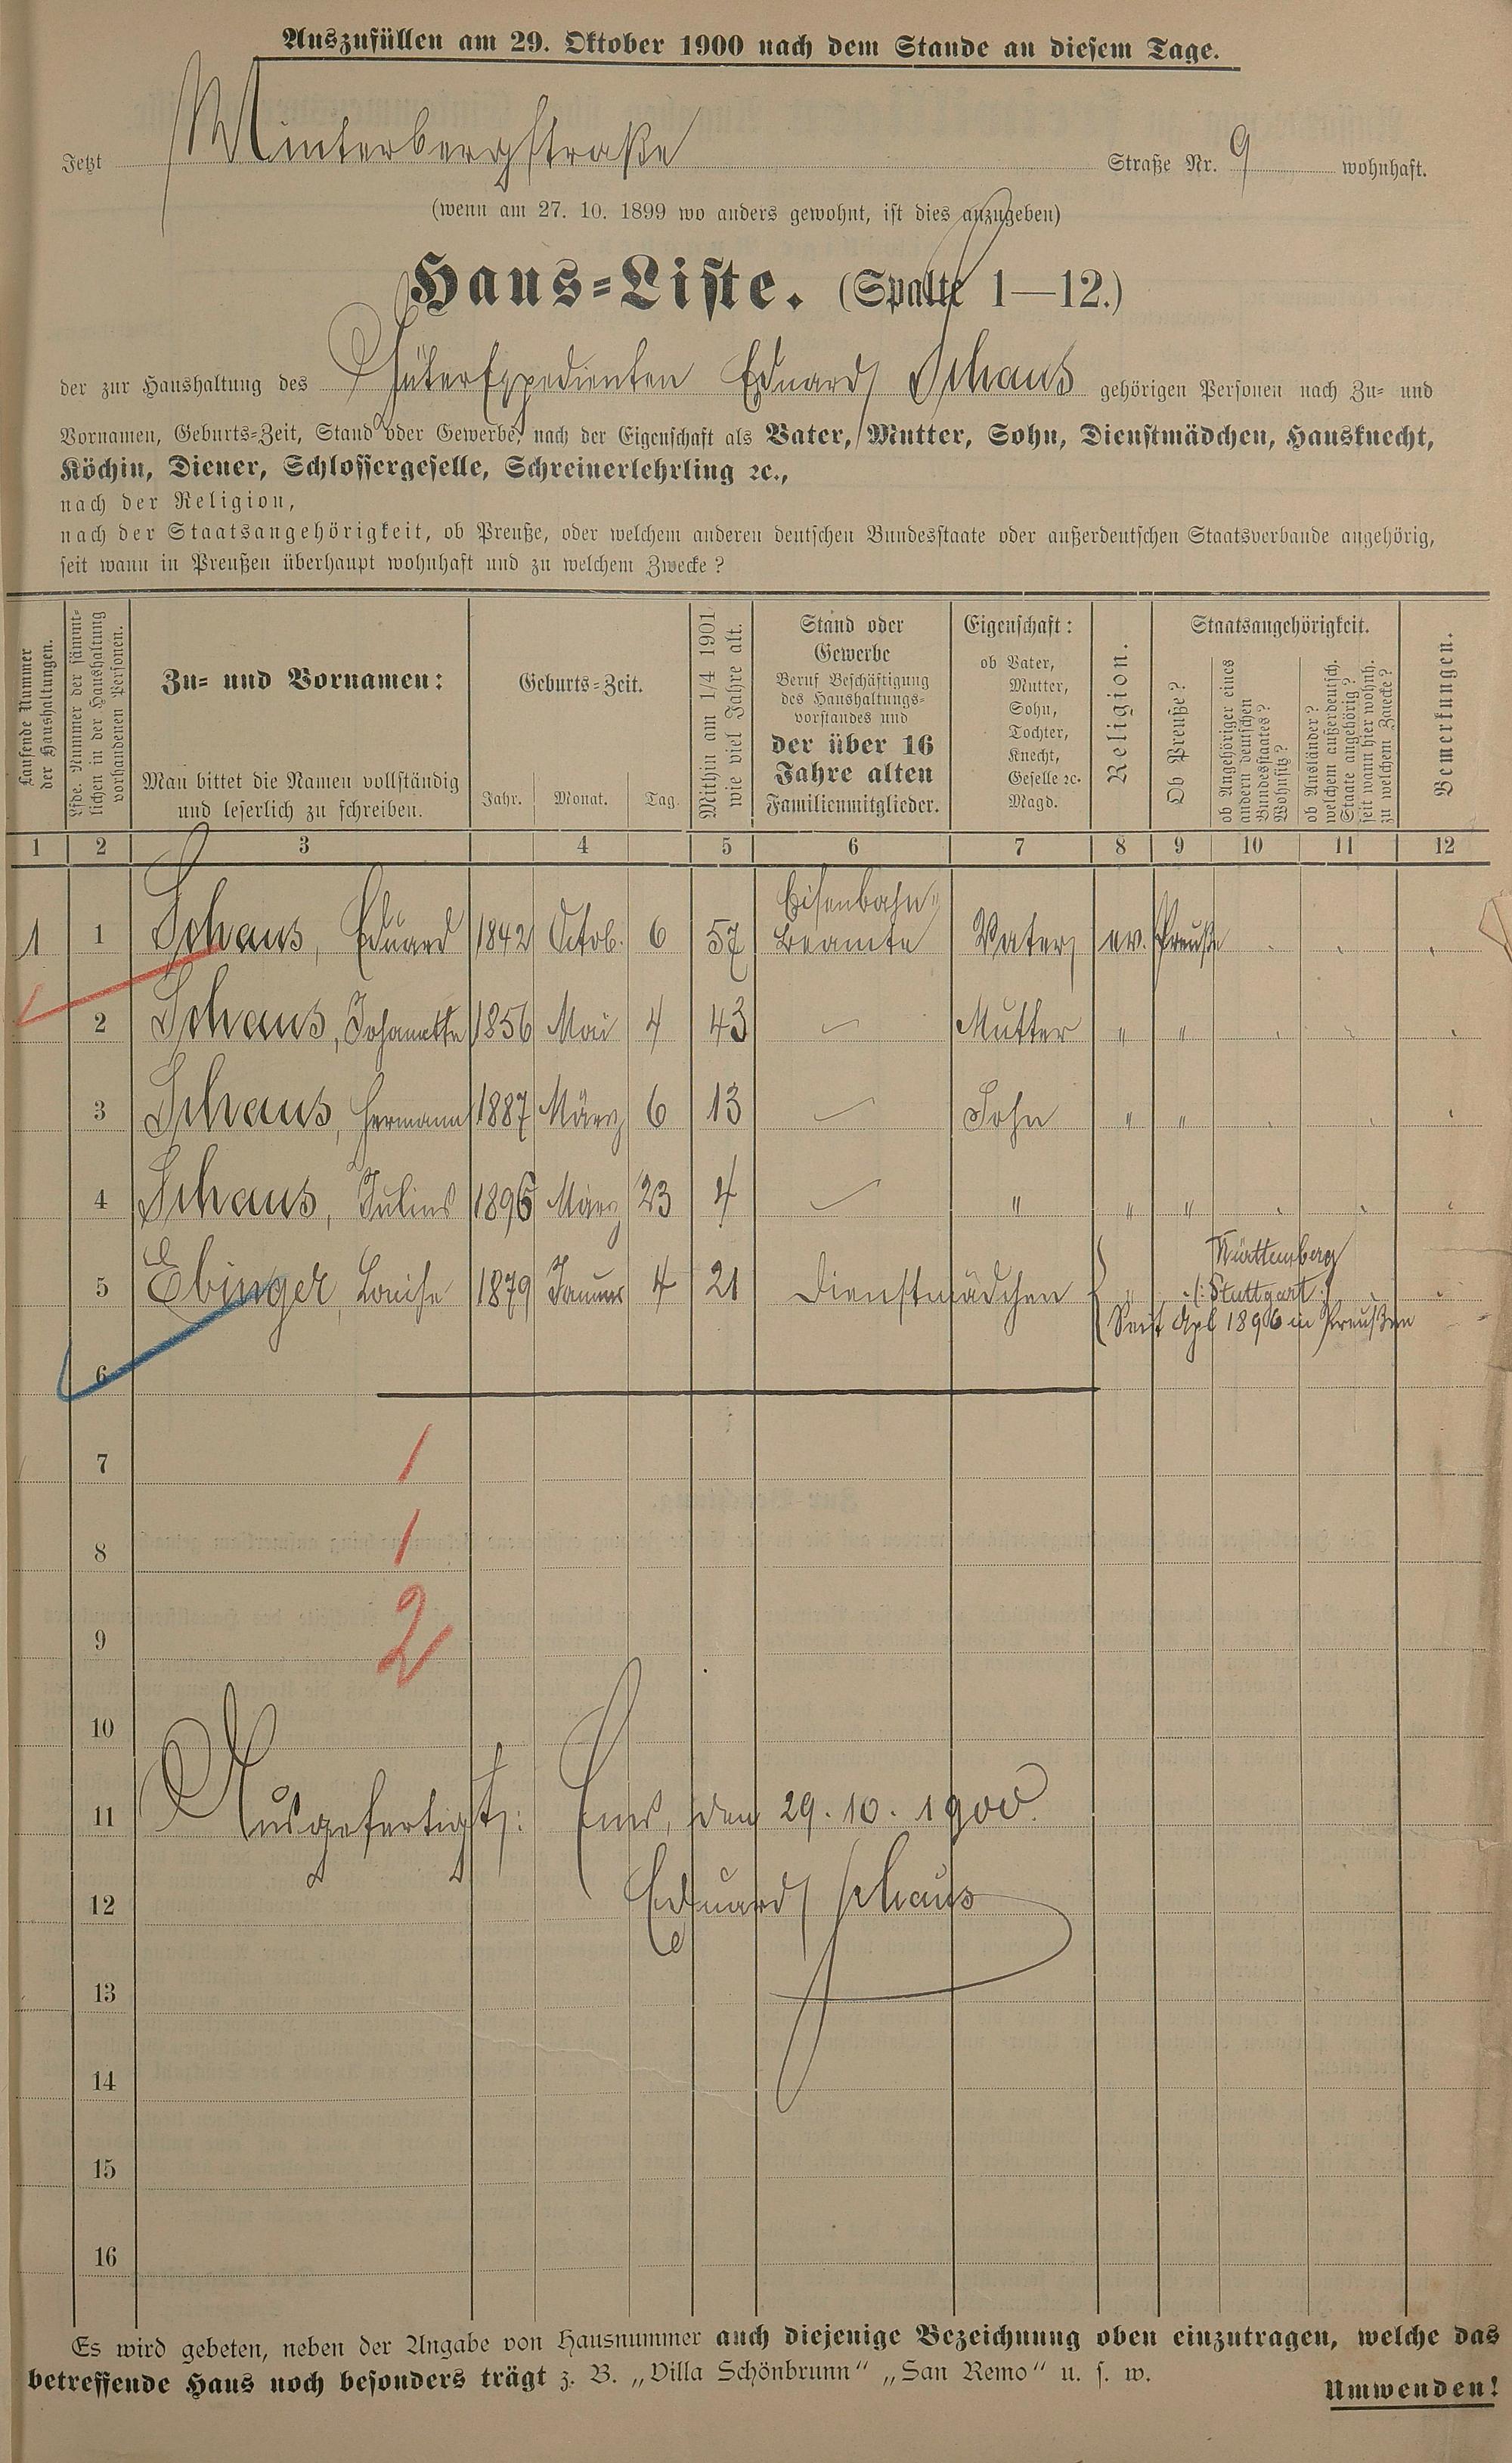 Auszufüllen am 29. Oktober 1900 nach dem Stande an diesem Tage.
Jetzt Winterbergstraße Straße Nr. 9 wohnhaft.
(wenn am 27. 10. 1899 wo anders gewohnt, ist dies anzugeben)
Haus-Liste. (Spalte 1—12.)
der zur Haushaltung des Güterexpedienten Eduard Schaus gehörigen Personen nach Zu- und
Vornamen, Geburts-Zeit, Stand oder Gewerbe, nach der Eigenschaft als Vater, Mutter, Sohn, Dienstmädchen, Hausknecht,
Köchin, Diener, Schlossergeselle, Schreinerlehrling ꝛc.,
nach der Religion,
nach der Staatsangehörigkeit, ob Preuße, oder welchem anderen deutschen Bundesstaate oder außerdeutschen Staatsverbande angehörig,
seit wann in Preußen überhaupt wohnhaft und zu welchem Zwecke?
Laufende Nummer
der Haushaltungen.
Lfde. Nummer der sämmt-
lichen in der Haushaltung
vorhandenen Personen.
Zu- und Vornamen:
Man bittet die Namen vollständig
und leserlich zu schreiben.
Geburts-Zeit.
Jahr. Monat. Tag.
Mithin am 1/4 1901
wie viel Jahre alt.
Stand oder
Gewerbe
Beruf Beschäftigung
des Haushaltungs-
vorstandes und
der über 16
Jahre alten
Familienmitglieder.
Eigenschaft:
ob Vater,
Mutter,
Sohn,
Tochter,
Knecht,
Geselle ꝛc.
Magd.
Religion.
Staatsangehörigkeit.
Ob Preuße?
ob Angehöriger eines
andern deutschen
Bundesstaates?
Wohnsitz?
ob Ausländer?
welchem außerdeutsch.
Staate angehörig?
seit wann hier wohnh.
zu welchem Zwecke?
Bemerkungen.
1 2 3 4 5 6 7 8 9 10 11 12
1 1 Schaus, Eduard 1842 Octob. 6 57 Eisenbahn- Beamte Vater ev. Preuße
2 Schaus, Johanette 1856 Mai 4 43 Mutter " "
3 Schaus, Hermann 1887 März 6 13 Sohn " "
4 Schaus, Julius 1896 März 23 4 " " "
5 Ebinger, Louise 1879 Januar 4 21 Dienstmädchen " Württemberg
(: Stuttgart :)
Seit Apl 1896 in Preußen
6
7 1
8 1
9 2
10
11 Ausgefertigt: Ems, den 29. 10. 1900.
12 Eduard Schaus
13
14
15
16
Es wird gebeten, neben der Angabe von Hausnummer auch diejenige Bezeichnung oben einzutragen, welche das
betreffende Haus noch besonders trägt z. B. „Villa Schönbrunn" „San Remo" u. s. w.
Umwenden!